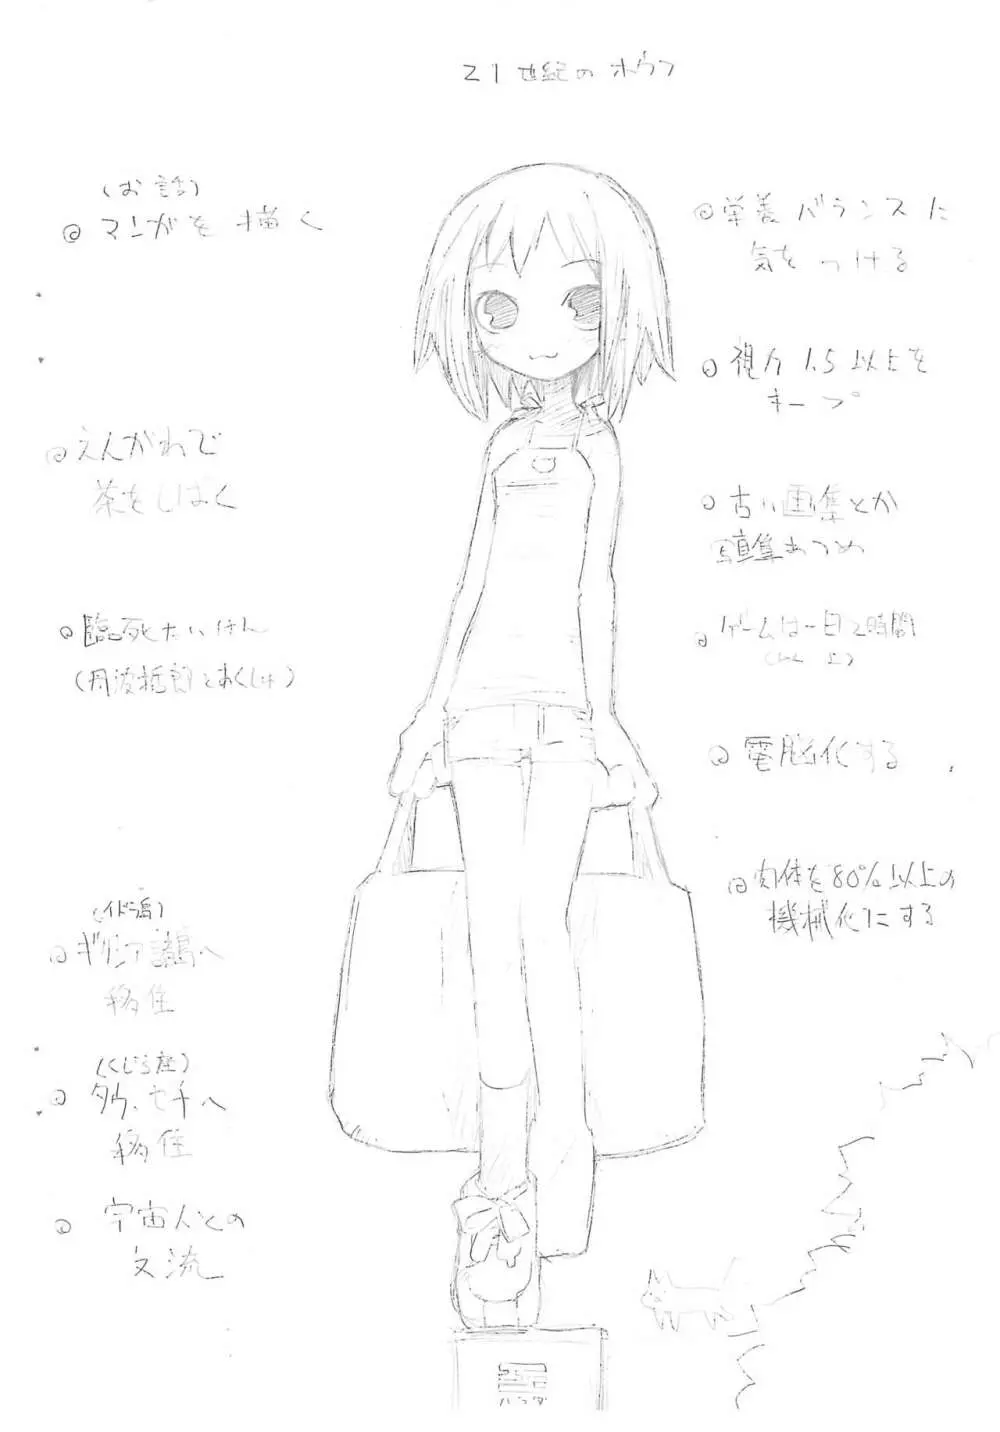 21世紀のホウフ
(お話)
◎マンガを描く
◎えんがわで
茶をしばく
◎臨死たいけん
(丹波哲郎とあくしゅ)
(イドラ島)
◎ギリシア諸島へ
移住
(くじら座)
◎タウ・セチへ
移住
◎宇宙人との
交流
◎栄養バランスに
気をつける
◎視力1.5以上を
キープ
◎古い画集とか
写真集あつめ
◎ゲームは一日2時間
(以上)
◎電脳化する
◎肉体を80%以上の
機械化にする